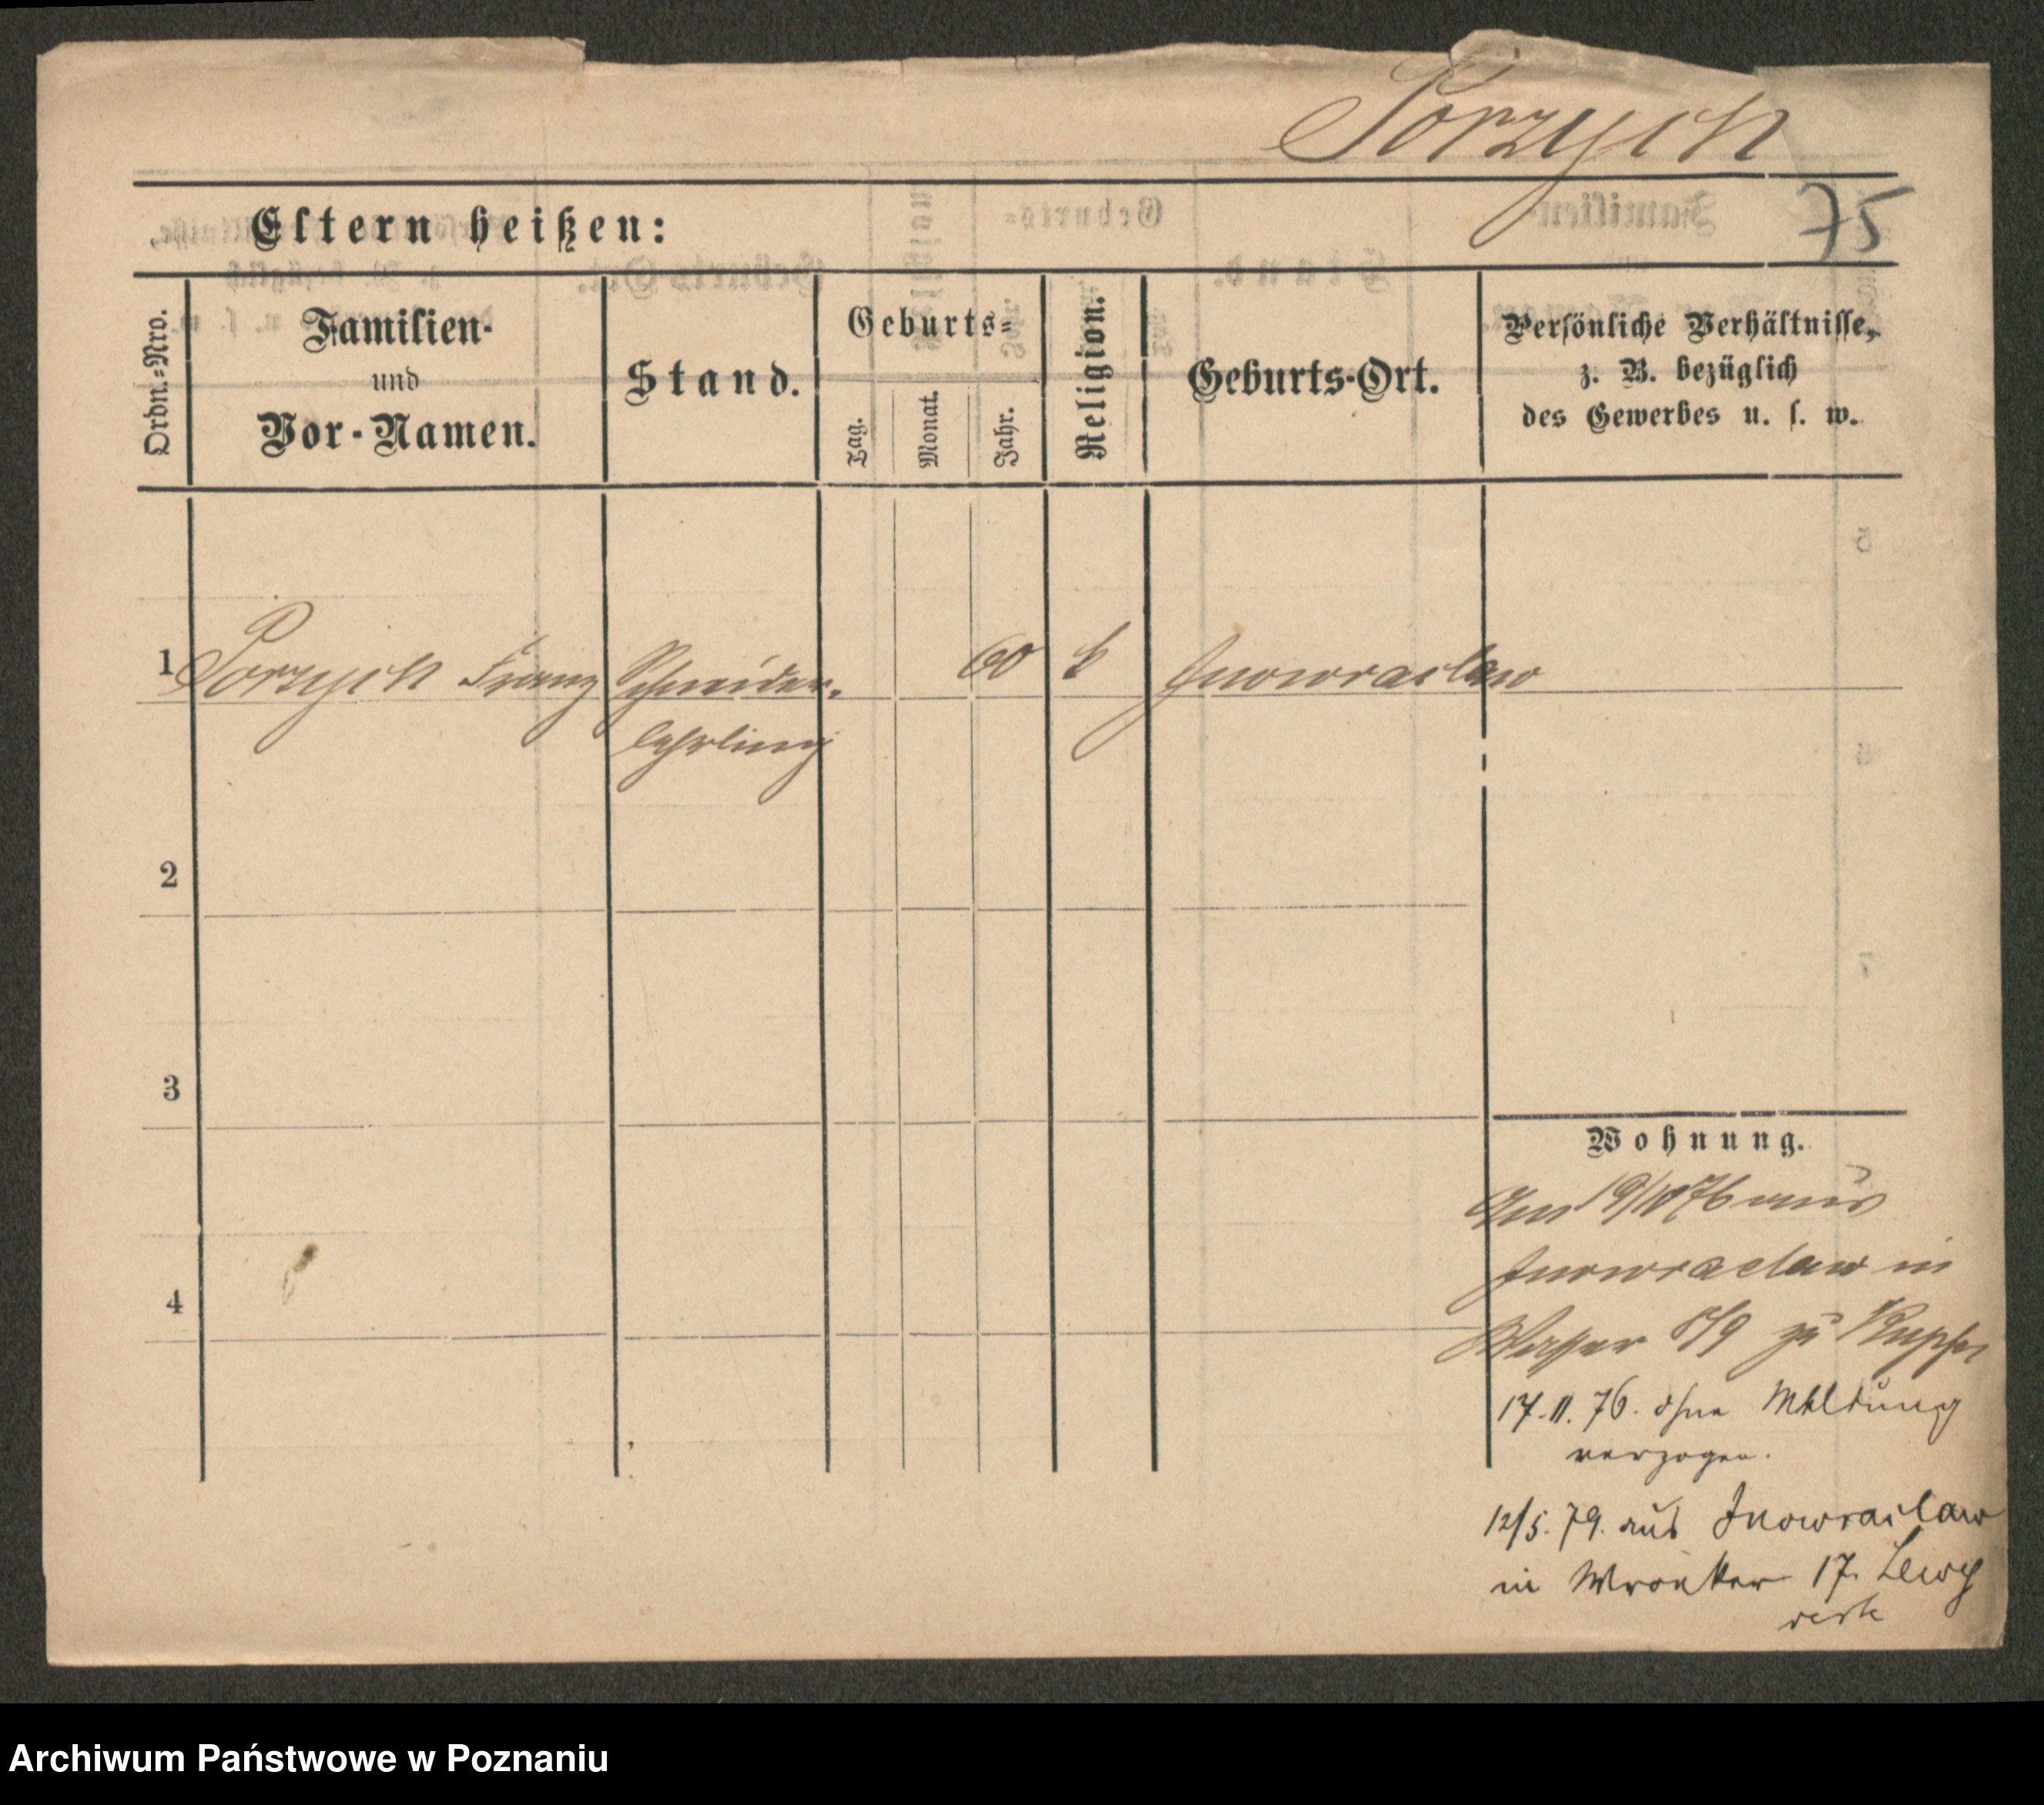 Porzych
75
Eltern heißen:
Ordn.=Nro.
Familien-
und
Vor-Namen.
Stand.
Geburts=
Tag.
Monat.
Jahr.
Religion.
Geburts-Ort.
Persönliche Verhältnisse,
z. B. bezüglich
des Gewerbes u. s. w.
1 Porzych Franz Schneider- 60 k Inowraclaw
lehrling
2
3
4
Wohnung.
19/10 76 aus
Inowraclaw in
Wasser 8/9 zu
17.11.76. ohne Meldung
verzogen.
12/5.79. aus Inowraclaw
in Wronker 17. Lewy